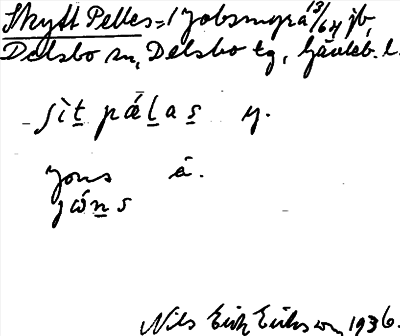 Skytt Pelles = 1 Jobsmyra 13/64 jb,
Delsbo sn, Delsbo tg, Gävleb. l.
sìt pǽlas y.
Jons å.
jóns
Nils Erik Eriksson 1936.